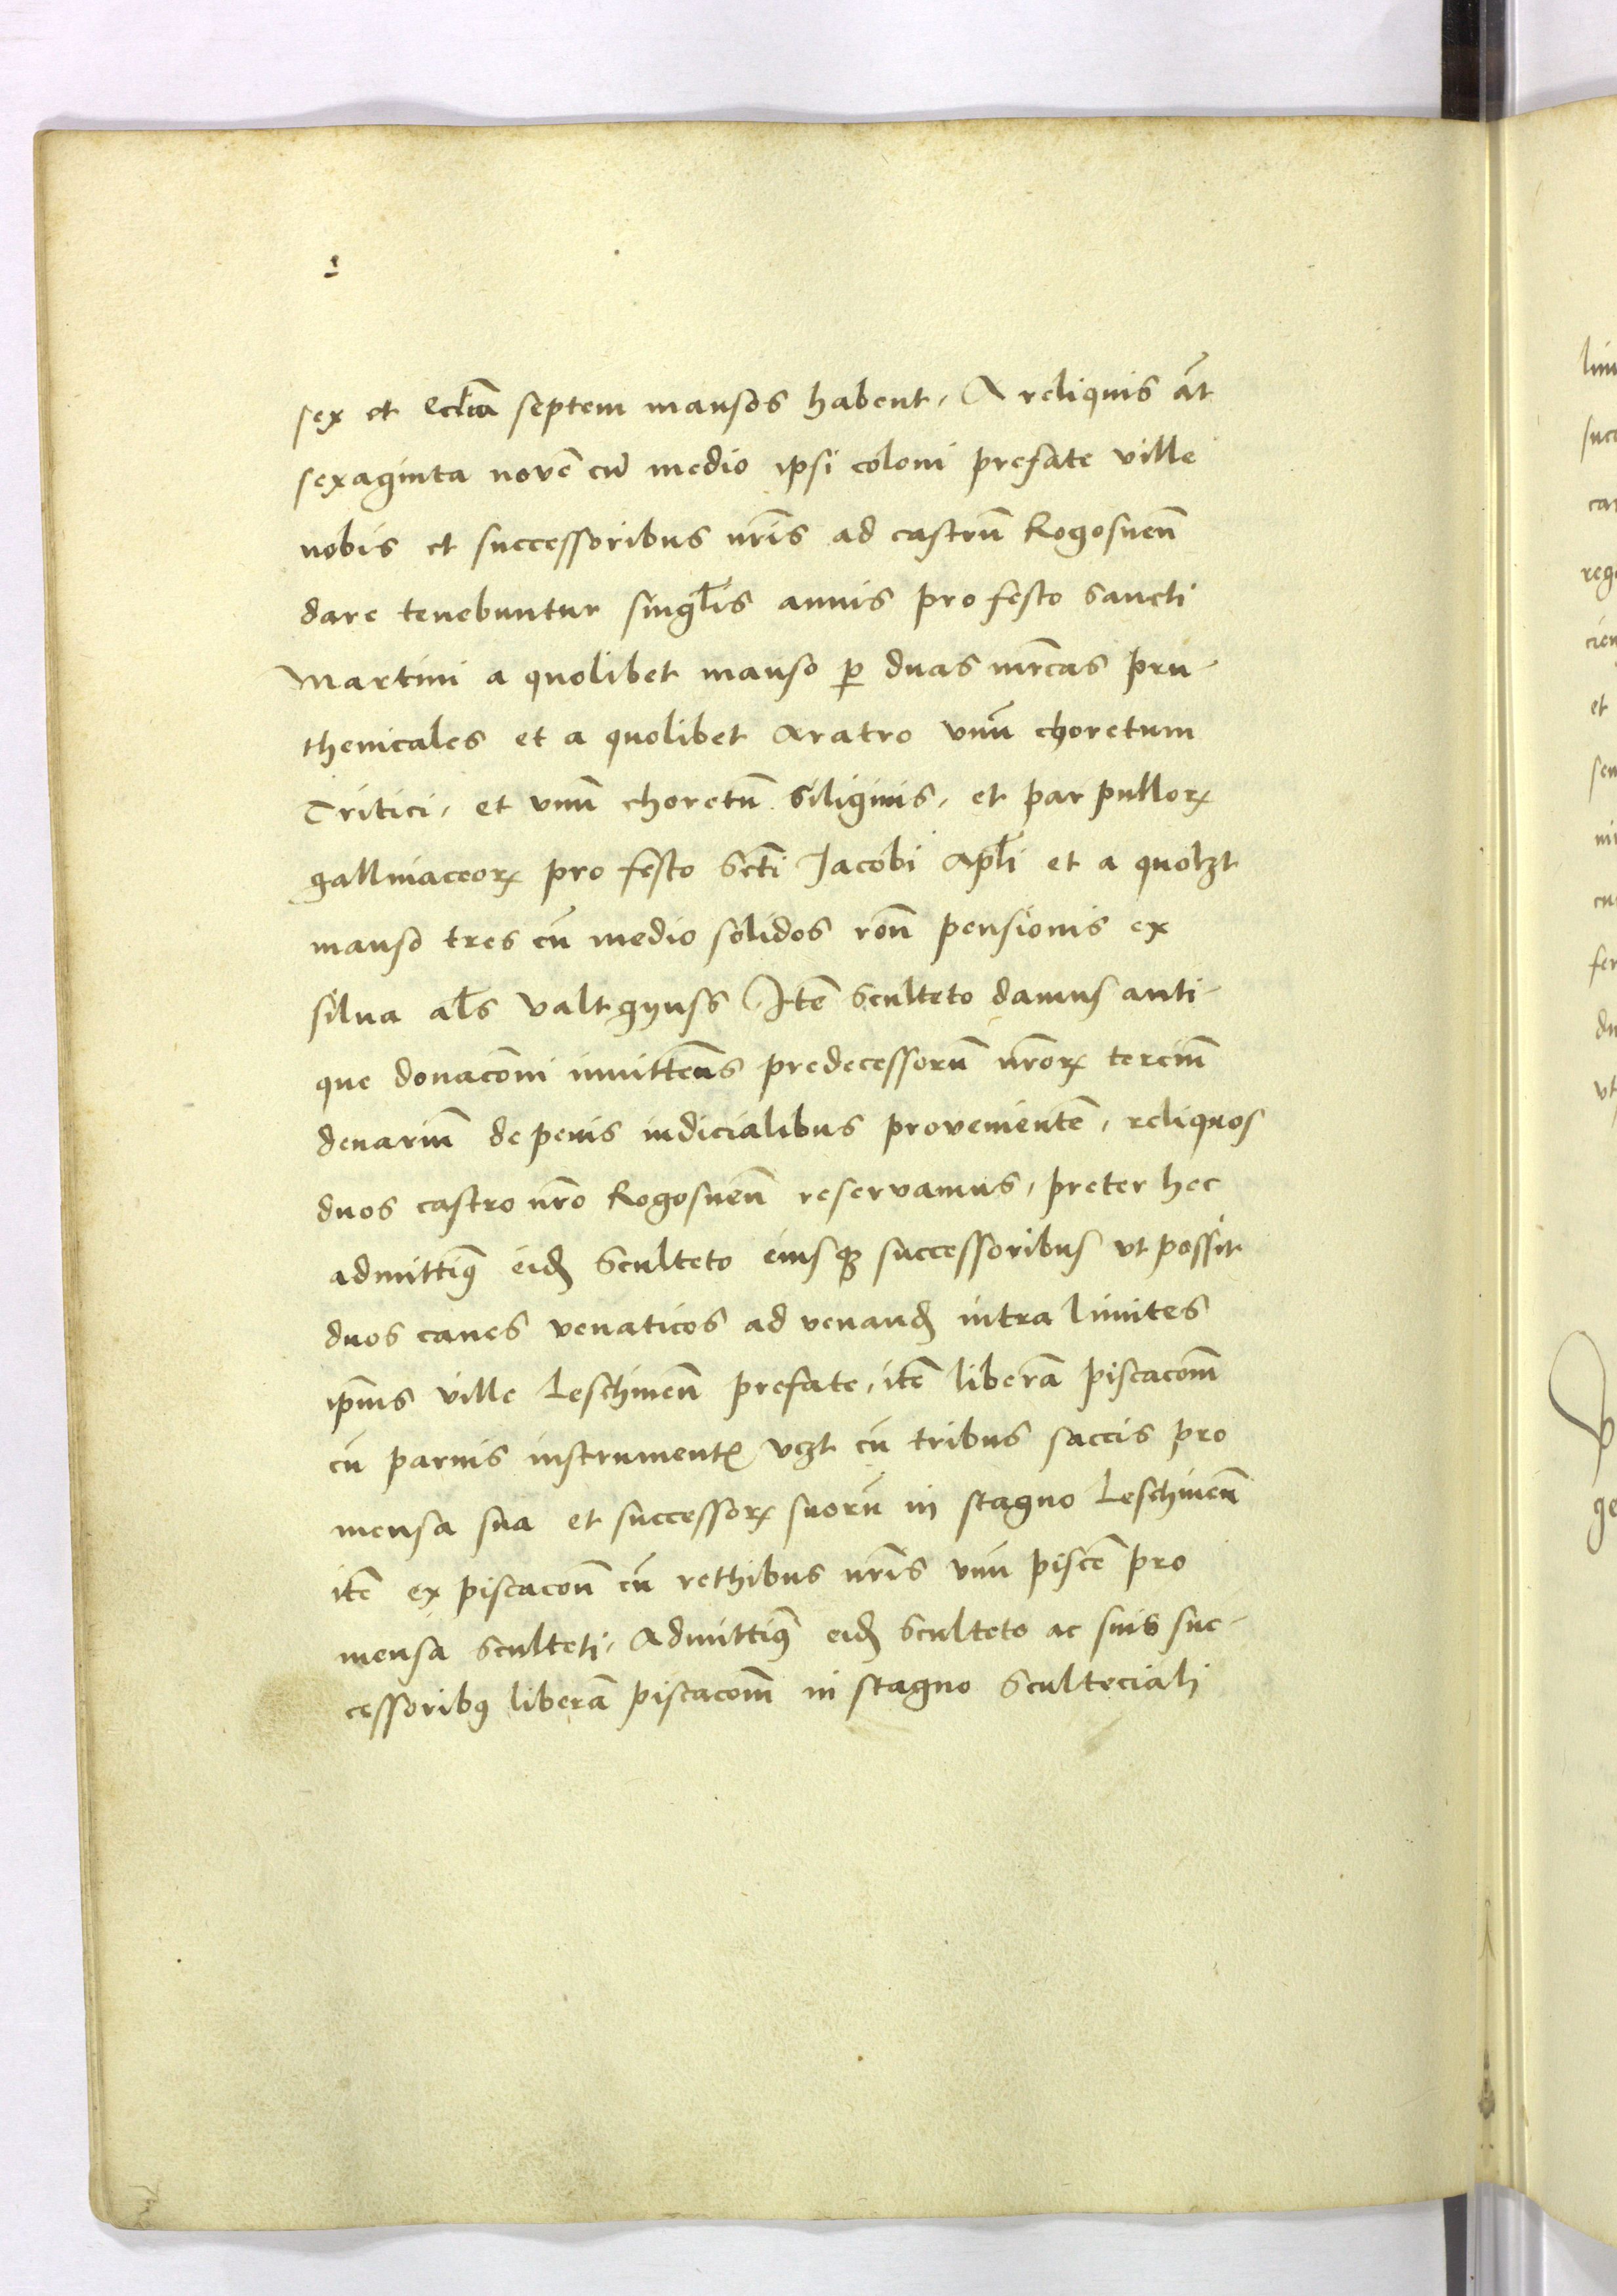 sex et eccl̄ia septem mansos habent. A reliquis āt
sexaginta novē cū medio ipsi coloni prefate ville
nobis et successoribus nr̄is ad castrū Rogosnen̄
dare tenebuntur singl̄is annis pro festo Sancti
Martini a quolibet manso ꝑ duas mr̄cas pru-
thenicales et a quolibet aratro vnū choretum
Tritici, et vnū choretū siliginis, et par pullorꝝ
gallinaceorꝝ pro festo Sc̄ti Jacobi Apl̄i et a quolꝫt
manso tres cū medio solidos rōn̄ pensionis ex
silua al̄s valtgynss Itē Sculteto damus anti-
que donac̄oni innitten̄s predecessorū nr̄orꝝ terciū
denariū de penis iudicialibus provenientē, reliquos
duos castro nr̄o Rogosnen̄ reservamus, preter hec
admittimꝰ eidē Sculteto eiusqꝫ successoribus vt possit
duos canes venaticos ad venandū intra limites
ip̄ius ville Leschinen̄ prefate, itē liberā piscac̄om̄
cū paruis instrumentis vꝫt cū tribus saccis pro
mensa sua et successorꝝ suorū in stagno Leschinen̄
itē ex piscac̄on̄ cū rethibus nr̄is vnū piscē pro
mensa Sculteti, Admittimꝰ eidē Sculteto ac suis suc-
cessoribꝰ liberā piscac̄om̄ in stagno Sculteciali